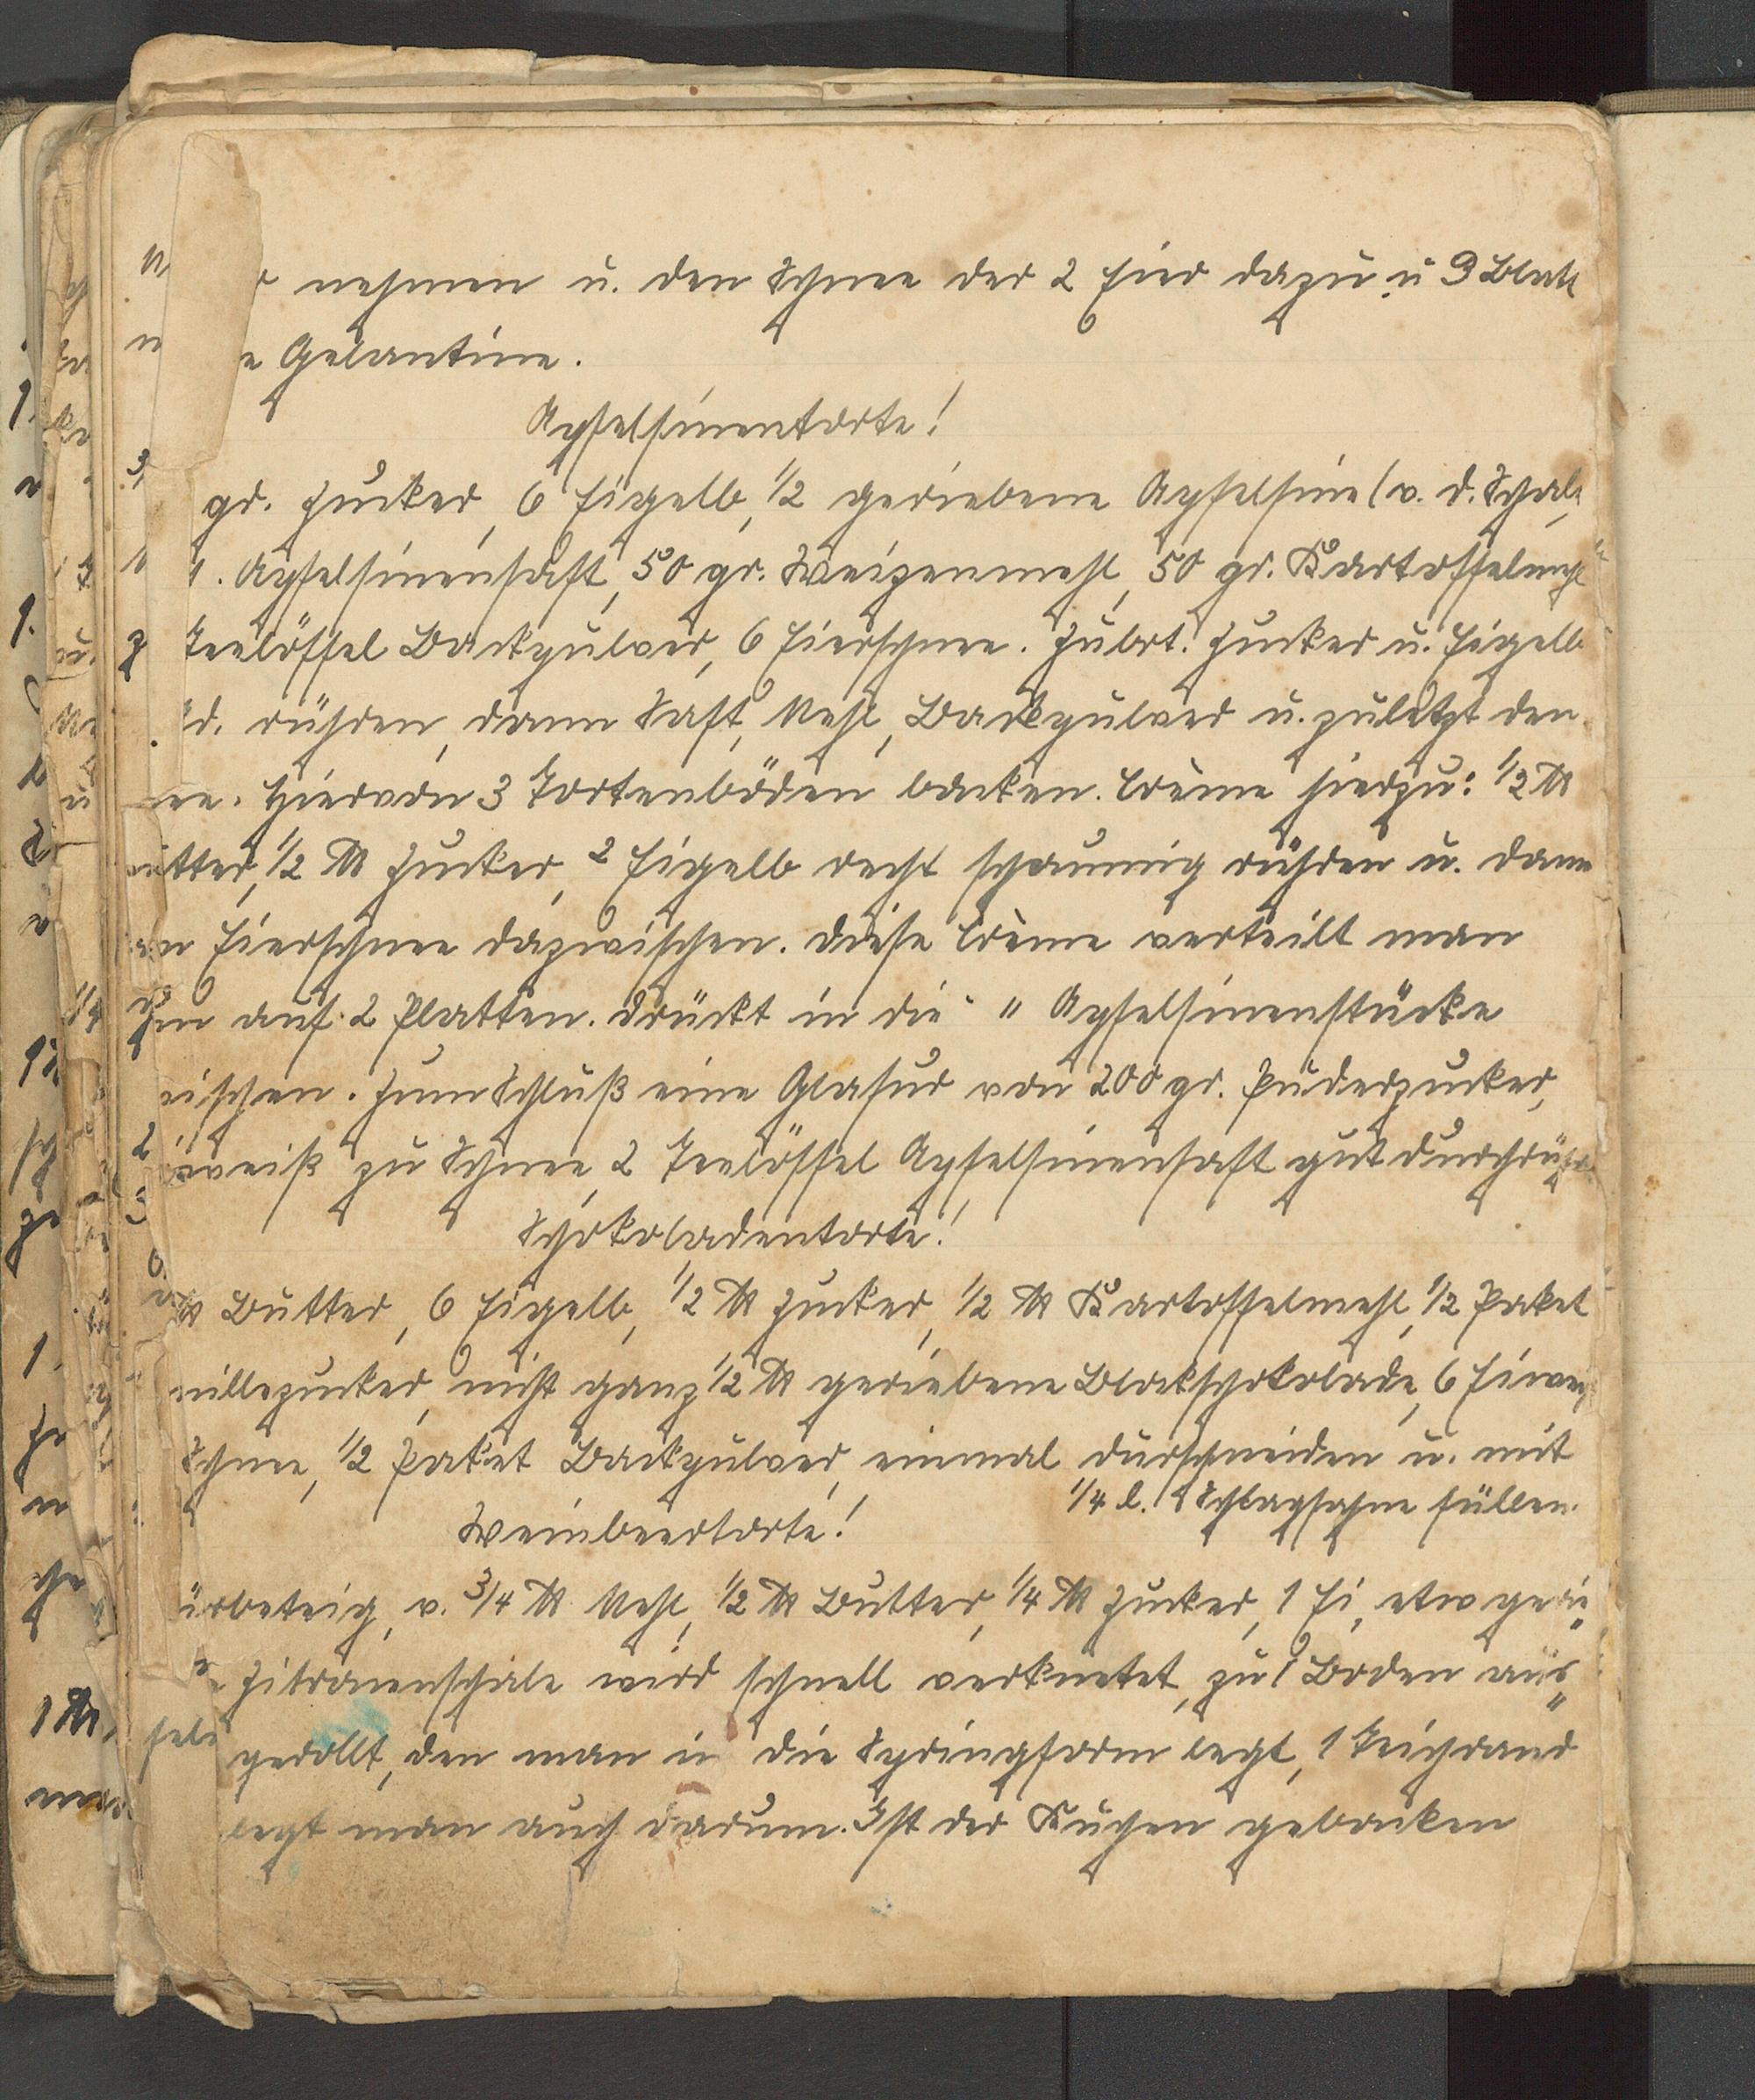 r nehmen u. den Schnee der 2 Eier dazu u 3 Blatt
e Gelantine.
Apfelsinentorte!
gr. Zucker, 6 Eigelb, 1/2 geriebene Apfelsine (v. d. Schale
. Apfelsinensaft, 50 gr. Weizenmehl, 50 gr. Kartoffelmehl
Teelöffel Backpulver, 6 Eierschnee. Zubrt. Zucker u. Eigelb
td. rühren, dann Saft, Mehl, Backpulver u. zuletzt den
nee. Hiervon 3 Tortenböden backen. Crème hierzu: 1/2 ℔
utter, 1/2 ℔ Zucker, 2 Eigelb recht schaumig rühren u. dann
en Eierschnee dazwischen. Diese Crème verteilt man
un auf 2 Platten. Drückt in die " Apfelsinenstücke
wischen. Zum Schluß eine Glasur von 200 gr. Puderzucker,
iweiß zu Schnee, 2 Teelöffel Apfelsinensaft gut durchrühr
Schokoladentorte!
℔ Butter, 6 Eigelb, 1/2 ℔ Zucker, 1/2 ℔ Kartoffelmehl, 1/2 Paket
nillezucker, nicht ganz 1/2 ℔ geriebene Blockschokolade, 6 Eiweiß
Schnee, 1/2 Paket Backpulver, einmal durschneiden u. mit
1/4 l. Schlagsahne füllen.
Weinbeertorte!
ürbeteig, v. 3/4 ℔ Mehl, 1/2 ℔ Butter, 1/4 ℔ Zucker, 1 Ei, etw gerie„
e Zitronenschale wird schnell verknetet, zu 1 Boden aus„
gerollt, den man in die Springform legt, 1 Teigrand
legt man auch darum. Ist der Kuchen gebacken